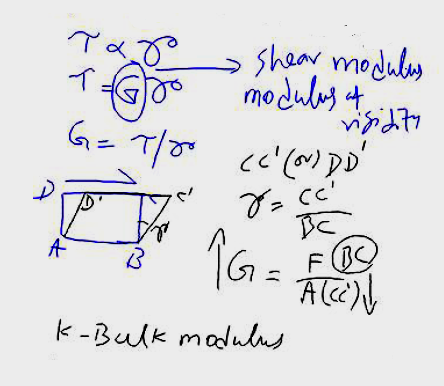 τ ∝ γ
τ = G γ → shear modulus
modulus of
rigidity
G = τ/γ
CC' (or) DD'
γ = CC'/BC
D D' C'
γ
A B
↑ G = F BC / A(CC') ↓
K - Bulk modulus